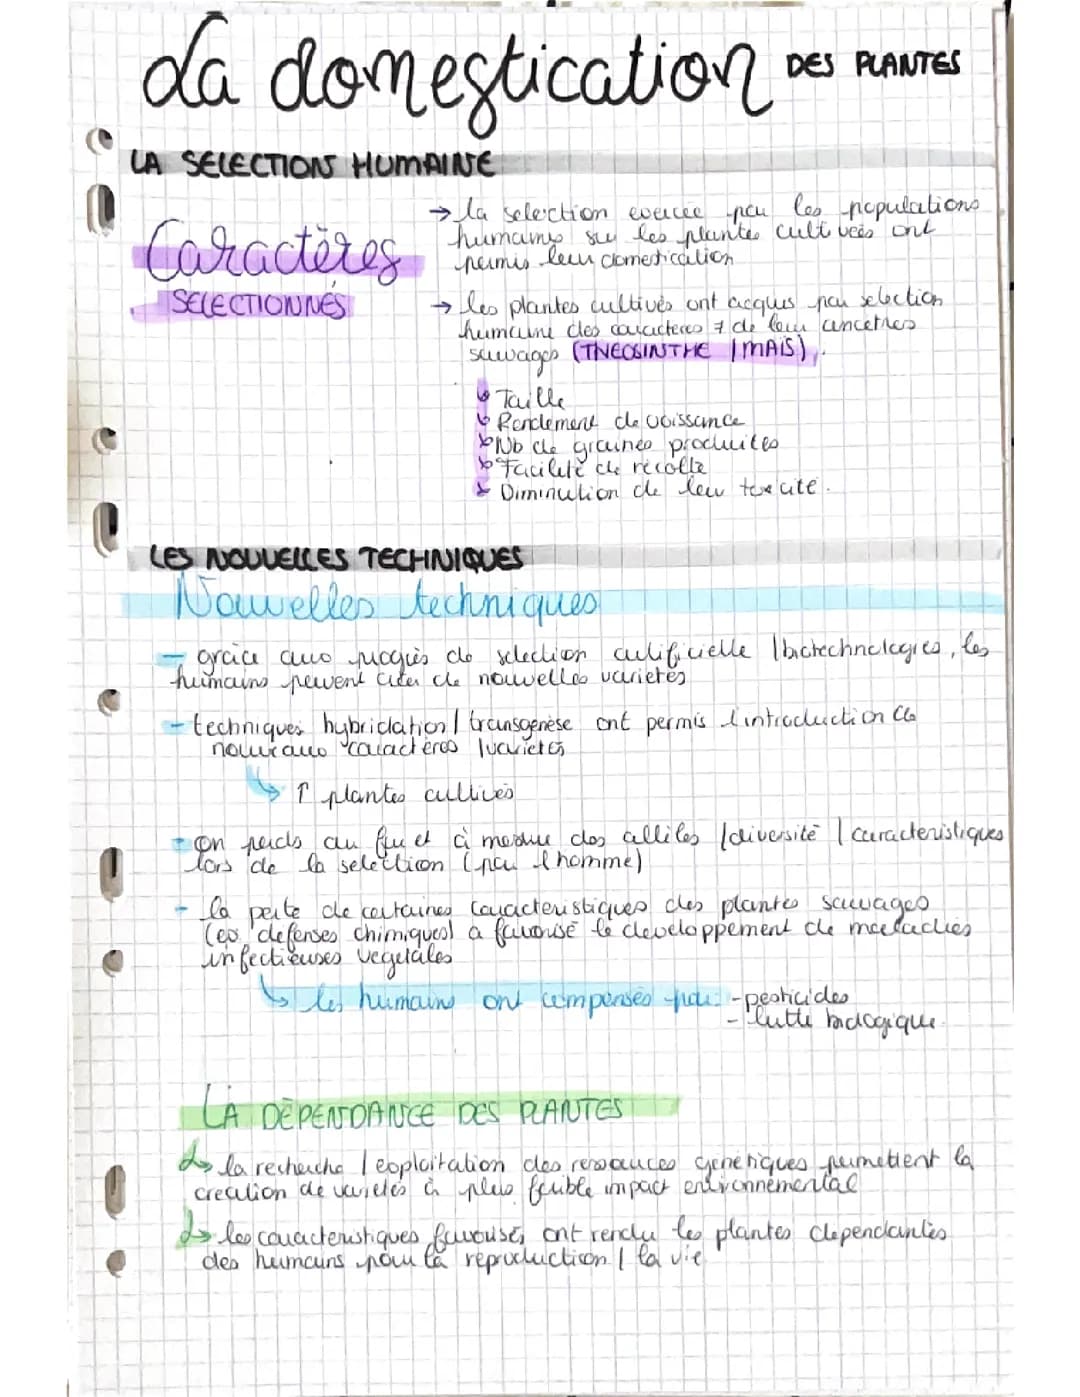 La domestication DES PLANTES
LA SELECTION HUMAINE
Caractères
SELECTIONNÉS
→ la selection exercée par les populations
humains sur les plantes cultivées ont
permis leur domestication
→ les plantes cultivés ont acquis par selection
humaine des caracteres ≠ de leur ancetres
sauvages (THEOSINTHE / MAIS).
↳ Taille
↳ Rendement de croissance
↳ Nb de graines produites
↳ Facilité de récolte
↳ Diminution de leur toxicité.
LES NOUVELLES TECHNIQUES
Nouvelles techniques
- grâce aux progrès de selection artificielle / biotechnologies, les
humains peuvent créer de nouvelles varietés
- techniques hybridation / transgenèse ont permis l'introduction de
nouveaux caractères / varietés
↳ ↑ plantes cultivés
- on perds au fur et à mesure des allèles / diversité / caracteristiques
lors de la selection (par l'homme)
- la perte de certaines caracteristiques des plantes sauvages
(ex defenses chimiques) a favorisé le developpement de maladies
infectieuses vegetales
↳ les humains ont compensés par: - pesticides
- lutte biologique
LA DÉPENDANCE DES PLANTES
↳ la recherche / exploitation des ressources genetiques permettent la
creation de varietés à plus faible impact environnemental
↳ les caracteristiques favorisés ont rendu les plantes dependantes
des humains pour la reproduction / la vie